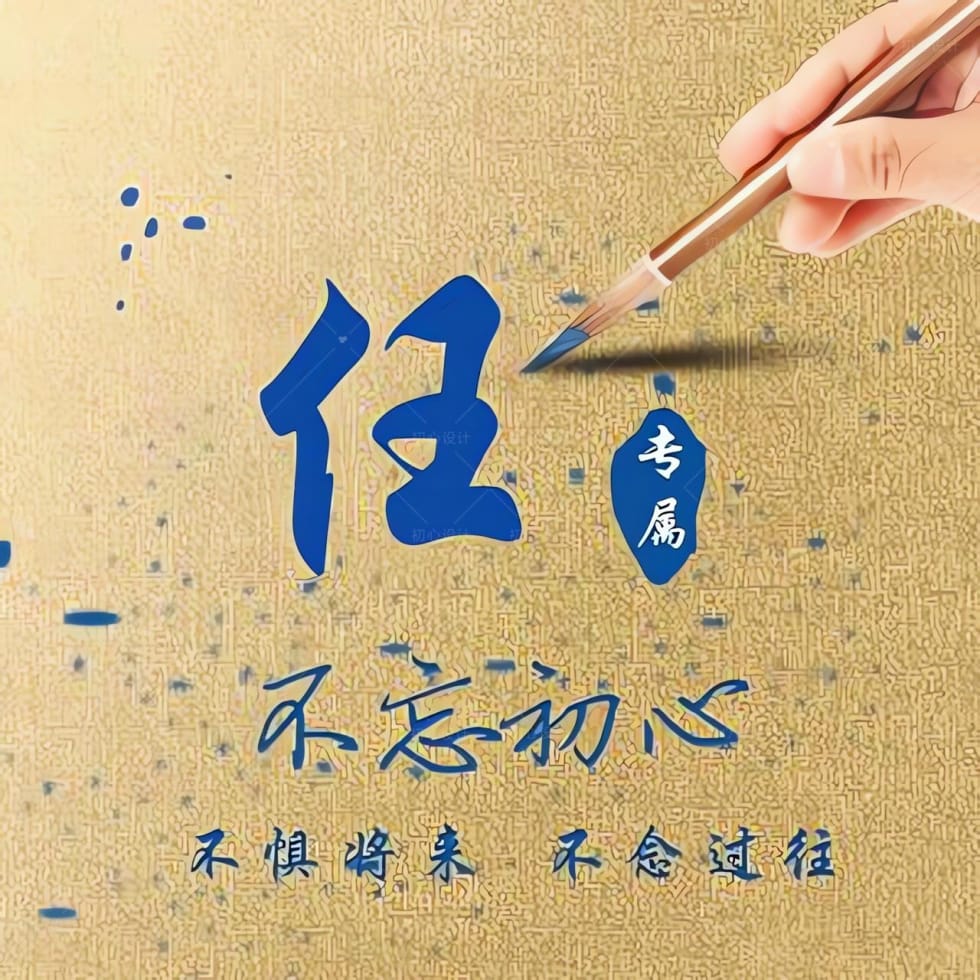 任
专属
不忘初心
不惧将来 不念过往
初心设计